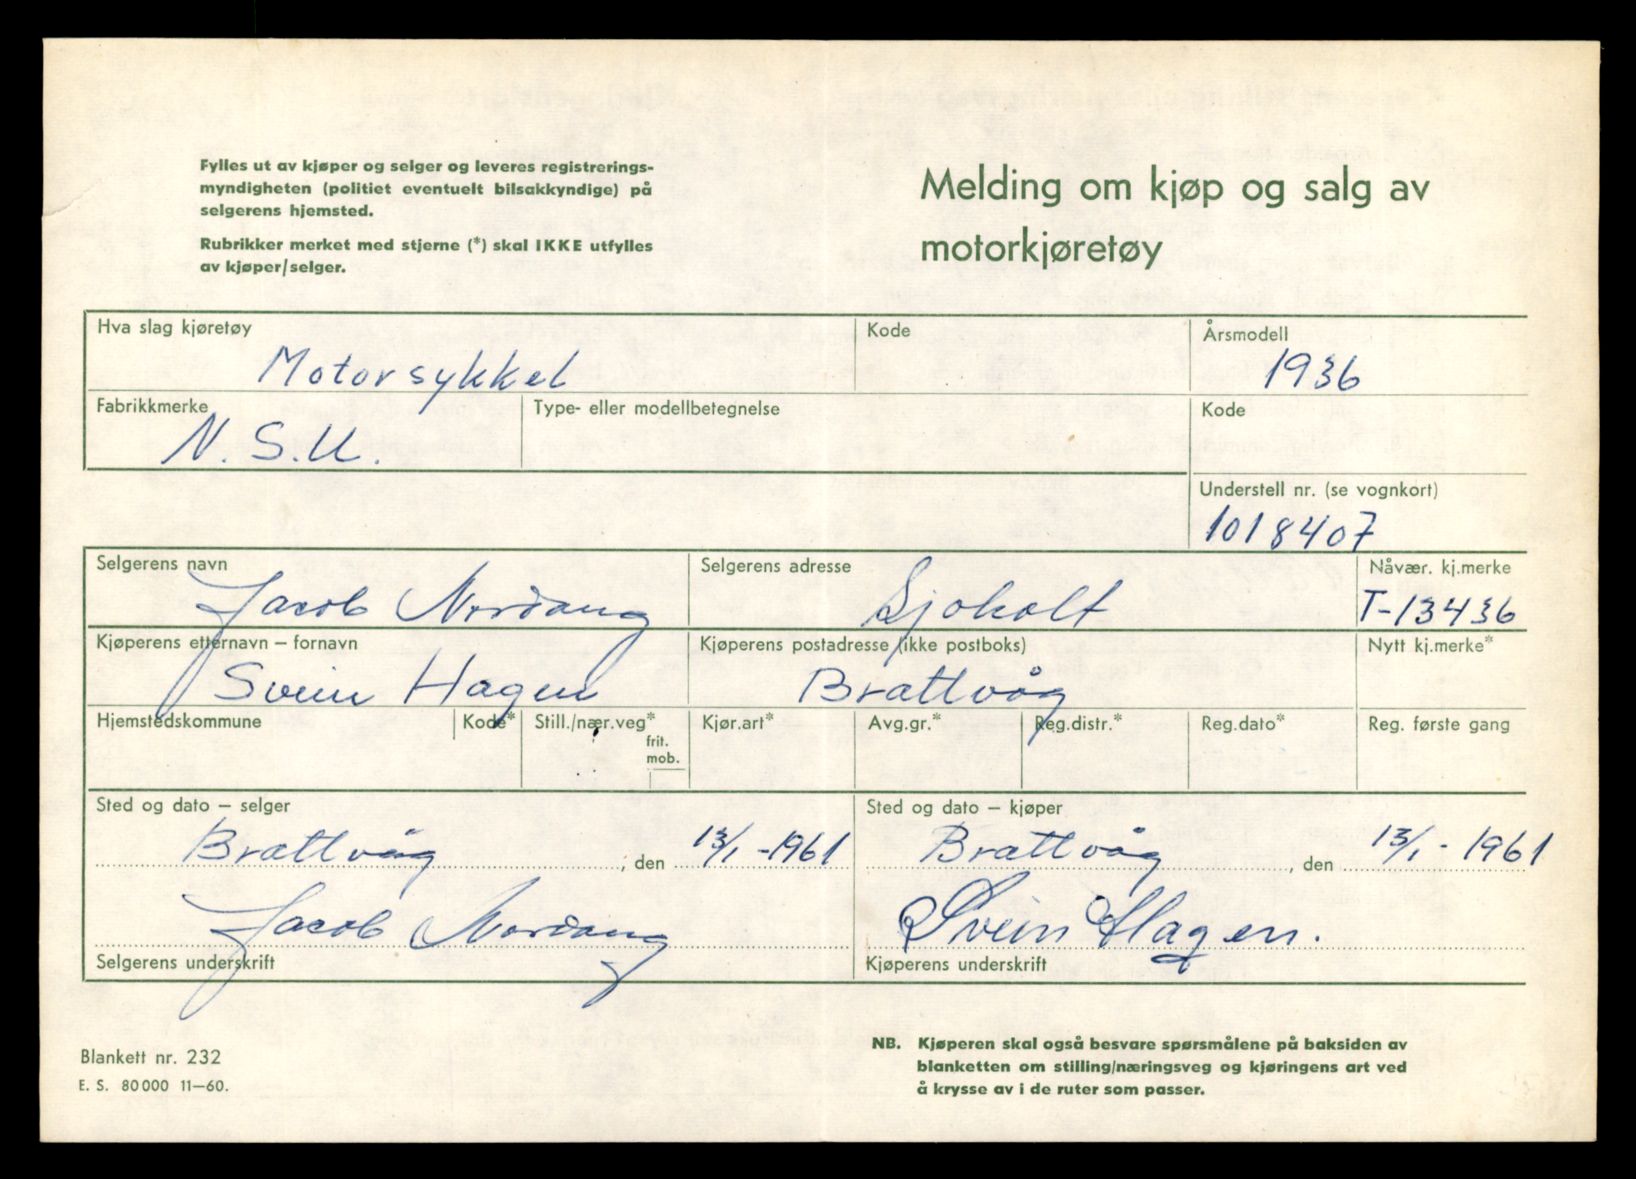 Fylles ut av kjøper og selger og leveres registrerings-
myndigheten (politiet eventuelt bilsakkyndige) på
selgerens hjemsted.
Rubrikker merket med stjerne (*) skal IKKE utfylles
av kjøper/selger.
Melding om kjøp og salg av
motorkjøretøy
Hva slag kjøretøy
Motorsykkel
Kode
Årsmodell
1936
Fabrikkmerke
N.S.U.
Type- eller modellbetegnelse
Kode
Understell nr. (se vognkort)
1018407
Selgerens navn
Jacob Nordang
Selgerens adresse
Sjoholt
Nåvær. kj.merke
T-13436
Kjøperens etternavn – fornavn
Svein Hagen
Kjøperens postadresse (ikke postboks)
Brattvåg
Nytt kj.merke*
Hjemstedskommune
Kode*
Still./nær.veg*
frit.
mob.
Kjør.art*
Avg.gr.*
Reg.distr.*
Reg.dato*
Reg. første gang
Sted og dato – selger
Brattvåg, den 13/1-1961
Jacob Nordang
Selgerens underskrift
Sted og dato – kjøper
Brattvåg, den 13/1-1961
Svein Hagen.
Kjøperens underskrift
Blankett nr. 232
E. S. 80000 11–60.
NB. Kjøperen skal også besvare spørsmålene på baksiden av
blanketten om stilling/næringsveg og kjøringens art ved
å krysse av i de ruter som passer.